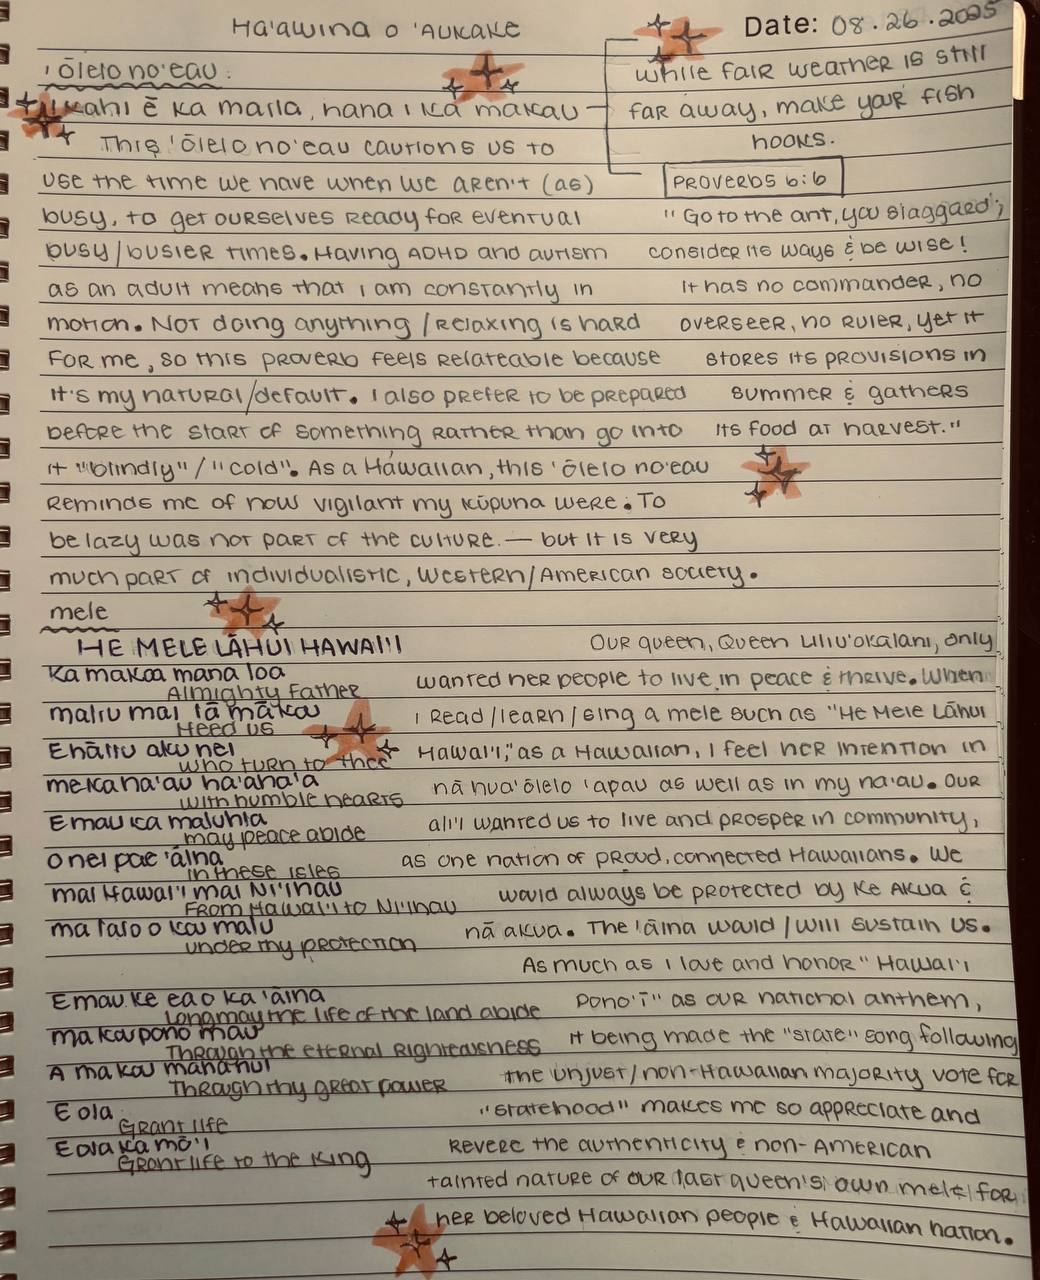 Ha'awina o 'Aukake
Date: 08.26.2025
'Ōlelo no'eau:
kahi ē ka malia, hana i ka makau
while fair weather is still
far away, make your fish
hooks.
This 'ōlelo no'eau cautions us to
use the time we have when we aren't (as)
busy, to get ourselves ready for eventual
busy/busier times. Having ADHD and autism
as an adult means that I am constantly in
motion. Not doing anything/relaxing is hard
for me, so this proverb feels relateable because
it's my natural/default. I also prefer to be prepared
before the start of something rather than go into
it "blindly"/"cold". As a Hawaiian, this 'ōlelo no'eau
reminds me of how vigilant my kūpuna were. To
be lazy was not part of the culture — but it is very
much part of individualistic, Western/American society.
Proverbs 6:6
"Go to the ant, you slaggard;
consider its ways & be wise!
It has no commander, no
overseer, no ruler, yet it
stores its provisions in
summer & gathers
its food at harvest."
mele
HE MELE LĀHUI HAWAI'I
Ka makua mana loa
Almighty Father
maliu mai iā mākou
Heed us
Ehāliu aku nei
who turn to thee
me ka na'au ha'aha'a
with humble hearts
E mau ka maluhia
may peace abide
O nei pae 'āina
in these isles
mai Hawai'i mai Ni'ihau
From Hawai'i to Ni'ihau
ma lalo o kou malu
under my protection
E mau ke ea o ka 'āina
Long may the life of the land abide
ma kou pono mau
Through the eternal righteousness
A ma kou mana nui
Through thy great power
E ola
Grant life
E ola ka mō'ī
Grant life to the King
Our queen, Queen Liliu'okalani, only
wanted her people to live in peace & thrive. When
I read/learn/sing a mele such as "He Mele Lāhui
Hawai'i," as a Hawaiian, I feel her intention in
nā hua'ōlelo 'apau as well as in my na'au. Our
ali'i wanted us to live and prosper in community,
as one nation of proud, connected Hawaiians. We
would always be protected by Ke Akua &
nā akua. The 'āina would/will sustain us.
As much as I love and honor "Hawai'i
Pono'ī" as our national anthem,
it being made the "state" song following
the unjust/non-Hawaiian majority vote for
"statehood" makes me so appreciate and
revere the authenticity & non-American
tainted nature of our last queen's own mele for
her beloved Hawaiian people & Hawaiian nation.